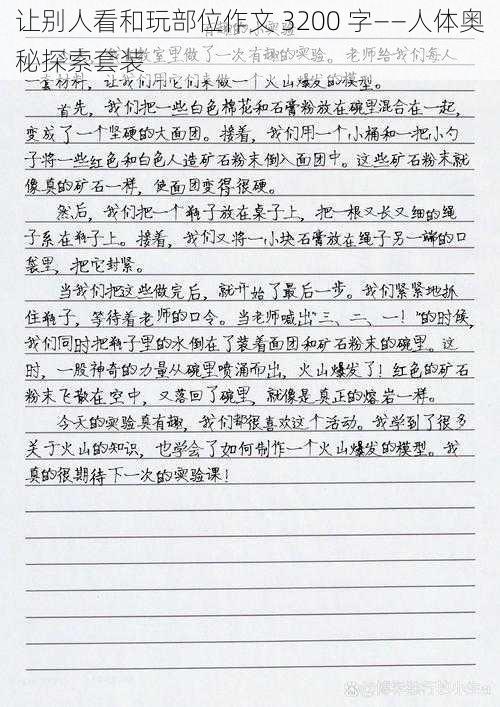 让别人看和玩部位作文 3200 字——人体奥
秘探索套装
教室里做了一次有趣的实验。老师给我们每人
一套材料，让我们用它们来做一个火山爆发的模型。
首先，我们把一些白色棉花和石膏粉放在碗里混合在一起，
变成了一个坚硬的大面团。接着，我们用一个小桶和一把小勺
子将一些红色和白色人造矿石粉末倒入面团中。这些矿石粉末就
像真的矿石一样，使面团变得很硬。
然后，我们把一个瓶子放在桌子上，把一根又长又细的绳
子系在瓶子上。接着，我们又将一小块石膏放在绳子另一端的口
袋里，把它封紧。
当我们把这些做完后，就开始了最后一步。我们紧紧地抓
住瓶子，等待着老师的口令。当老师喊出“三、二、一！”的时候，
我们同时把瓶子里的水倒在了装着面团和矿石粉末的碗里。这
时，一股神奇的力量从碗里喷涌而出，火山爆发了！红色的矿石
粉末飞散在空中，又落回了碗里，就像是真正的熔岩一样。
今天的实验真有趣，我们都很喜欢这个活动。我学到了很多
关于火山的知识，也学会了如何制作一个火山爆发的模型。我
真的很期待下一次的实验课！